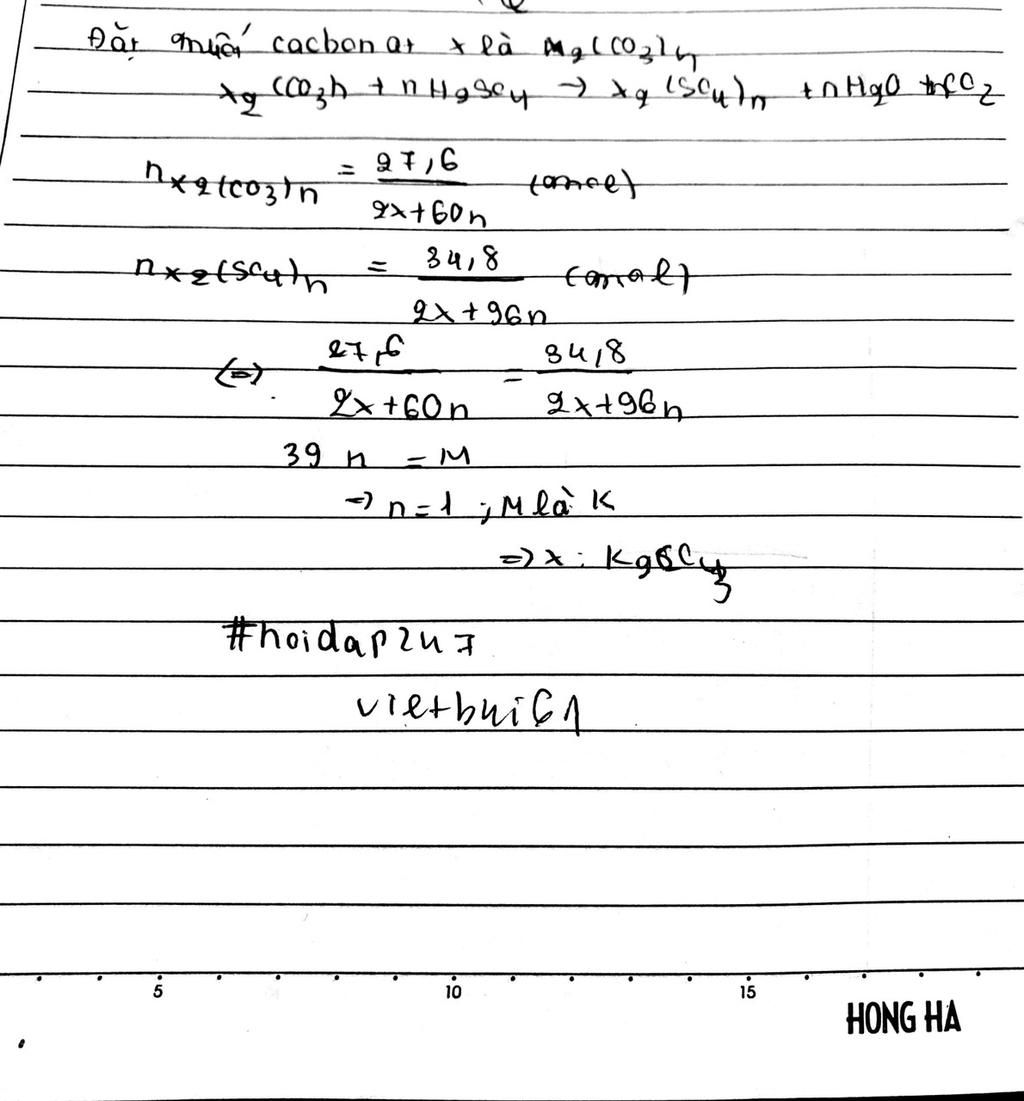 Đặt muối cacbonat x là M2(CO3)n
X2(CO3)n + nH2SO4 → X2(SO4)n + nH2O + nCO2
nX2(CO3)n = 27,6 / 2x+60n (mol)
nX2(SO4)n = 34,8 / 2x+96n (mol)
(=) 27,6 / 2x+60n = 34,8 / 2x+96n
39 n = M
=) n=1 ; M là K
=) x : K2CO3
#hoidap247
vietbui61
5 10 15
HONG HA